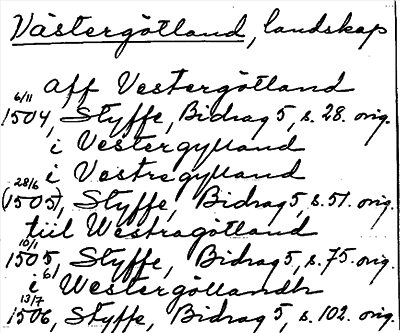 Västergötland, landskap
aff Vestergötland
6/11 1504, Styffe, Bidrag 5, s. 28. orig.
i Vestergylland
i Vestregylland
28/6 (1505), Styffe, Bidrag 5, s. 51. orig.
tiil Westragötland
10/1 1505, Styffe, Bidrag 5, s. 75. orig.
i 61 Westergöllandh
13/7 1506, Styffe, Bidrag 5, s. 102. orig.